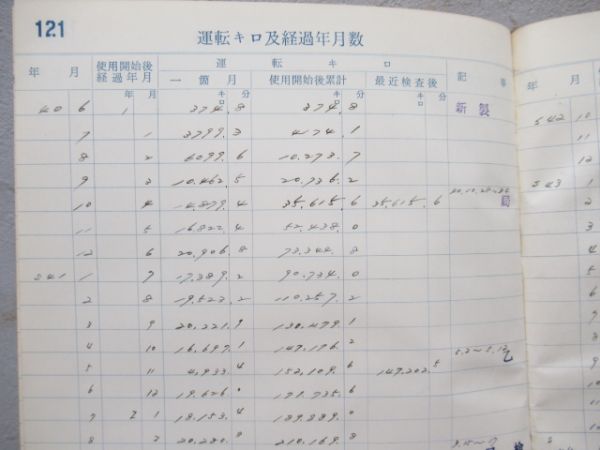 121
運転キロ及経過年月数
年 月 使用開始後経過年月 運 転 キ ロ 記 事 年 月
年 月 一 箇 月 使用開始後累計 最近検査後
キロ 分 キロ 分 キロ 分
40 6 1 374.8 374.8 新製 S42 10
7 1 3799.3 4174.1 11
8 2 6099.6 10.273.7 12
9 3 10.462.5 20.736.2 S43 1
10 4 14.879.4 35.615.6 35.615.6 2
11 5 16822.4 52.438.0 3
12 6 20.906.8 73.344.8 4
S41 1 7 17.389.2 90.734.0 5
2 8 19.523.2 110.257.2 6
3 9 20.221.9 130.479.1
4 10 16.697.1 147.176.2 5.2～5.12 乙
5 11 4.933.4 152.109.6 149.202.5
6 12 19.626.0 171.735.6
7 2 1 18.153.4 189.889.0
8 2 20.280.8 210.169.8